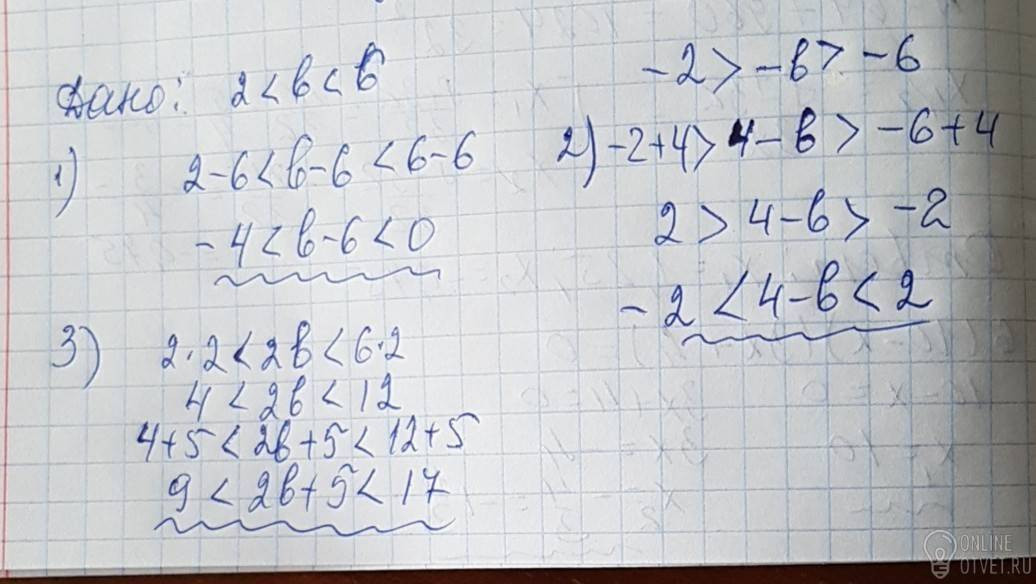 Дано: 2 < в < 6
1) 2-6 < в-6 < 6-6
-4 < в-6 < 0
-2 > -в > -6
2) -2+4 > 4-в > -6+4
2 > 4-в > -2
-2 < 4-в < 2
3) 2·2 < 2в < 6·2
4 < 2в < 12
4+5 < 2в+5 < 12+5
9 < 2в+5 < 17
ONLINE
OTVET.RU